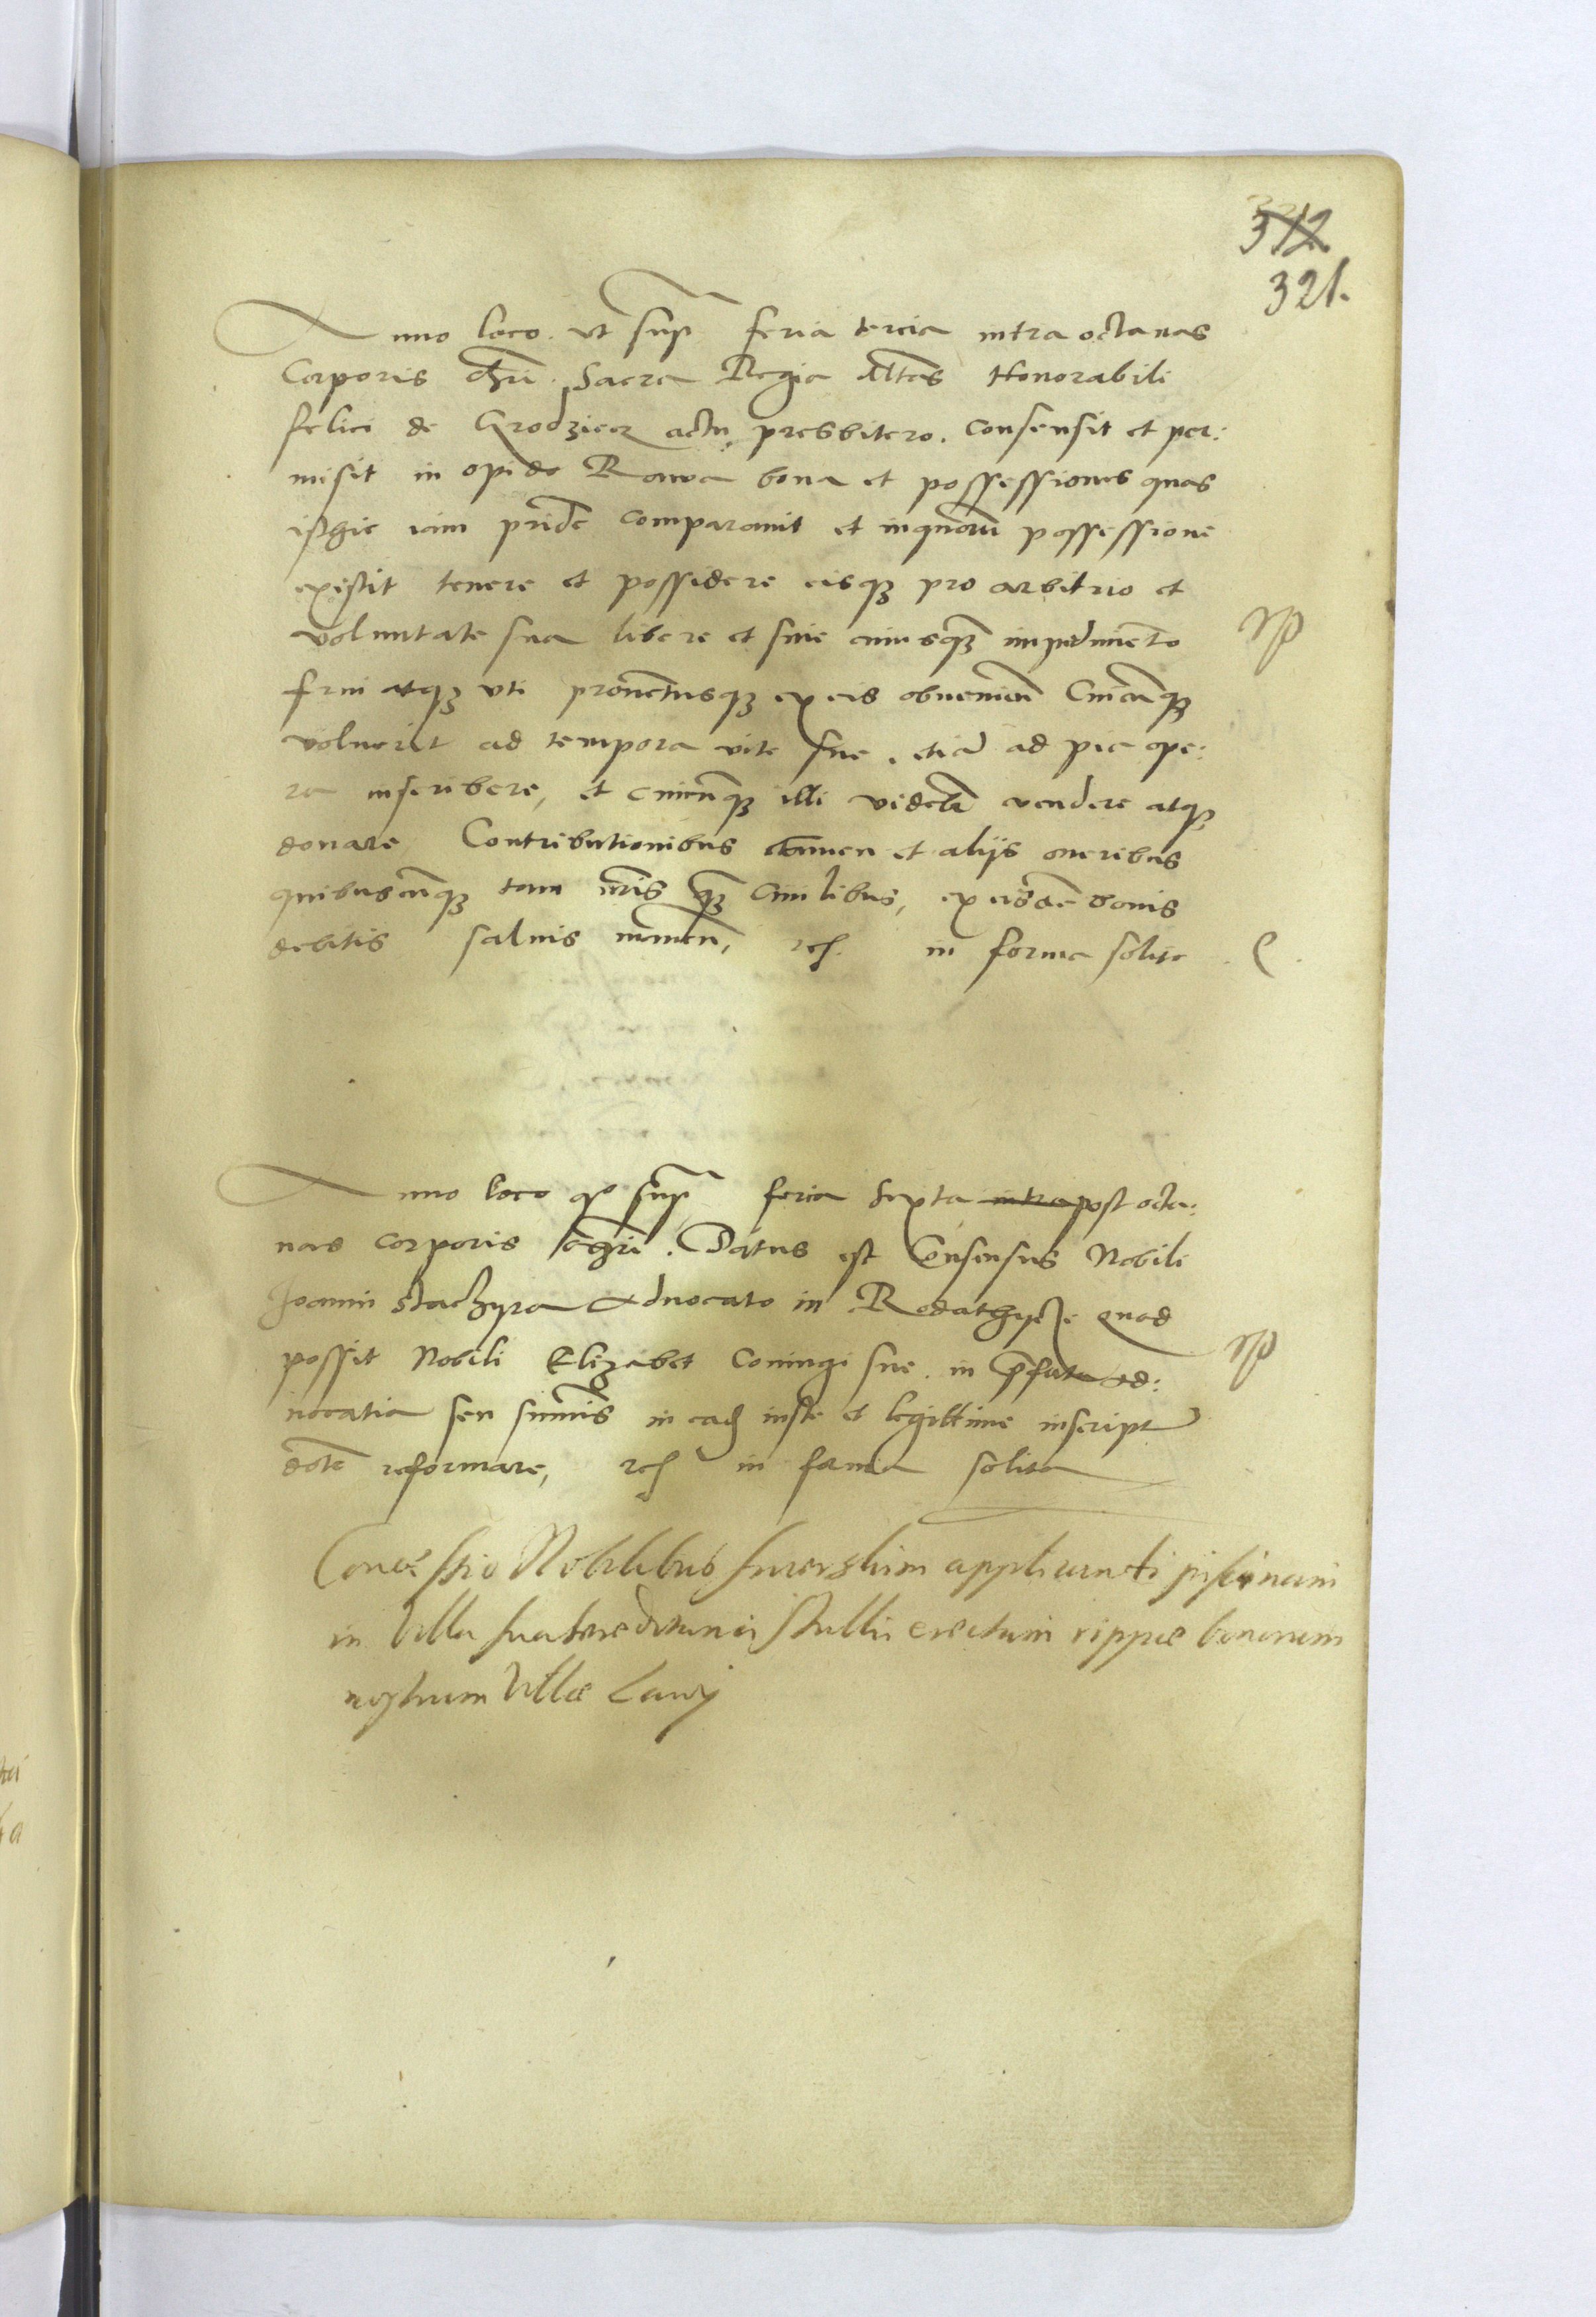 312
321.
Anno loco ut sup feria tercia intra octauas
Corporis chri. Sacra Regia Mtas Honorabili
felici de Grodziecz actu presbitero. Consensit et per:
misit in opido Rawa bona et possessiones quas
isthic iam pride comparauit et in quorū possessione
existit tenere et possidere eisqz pro arbitrio et
voluntate sua libere et sine cuiusqz impedimeto
frui atqz vti prouentusqz ex eis obuenien Cuicūqz
voluerit ad tempora vite sue. etiā ad pia ope:
ra inscribere, et cuicūqz illi videbit vendere atqz
donare Contributionibus tamen et alijs oneribus
quibuscūqz tam nris qz Ciuilibus, ex eisdē bonis
debitis saluis manen, in forma solita
Anno loco q sup feria sexta intra post octa:
uas corporis chri. Datus est Consensus Nobili
Joanni Stachyra Aduocato in quod
possit Nobili Elizabet Coniugi sue in pfata ad:
uocatia seu summis in ead iuste et legittime inscript
dotē reformare, in forma solita
Concessio Nobilibus applicandi piscinam
in Villa sua erectam rippae bonorum
nostrum Villae